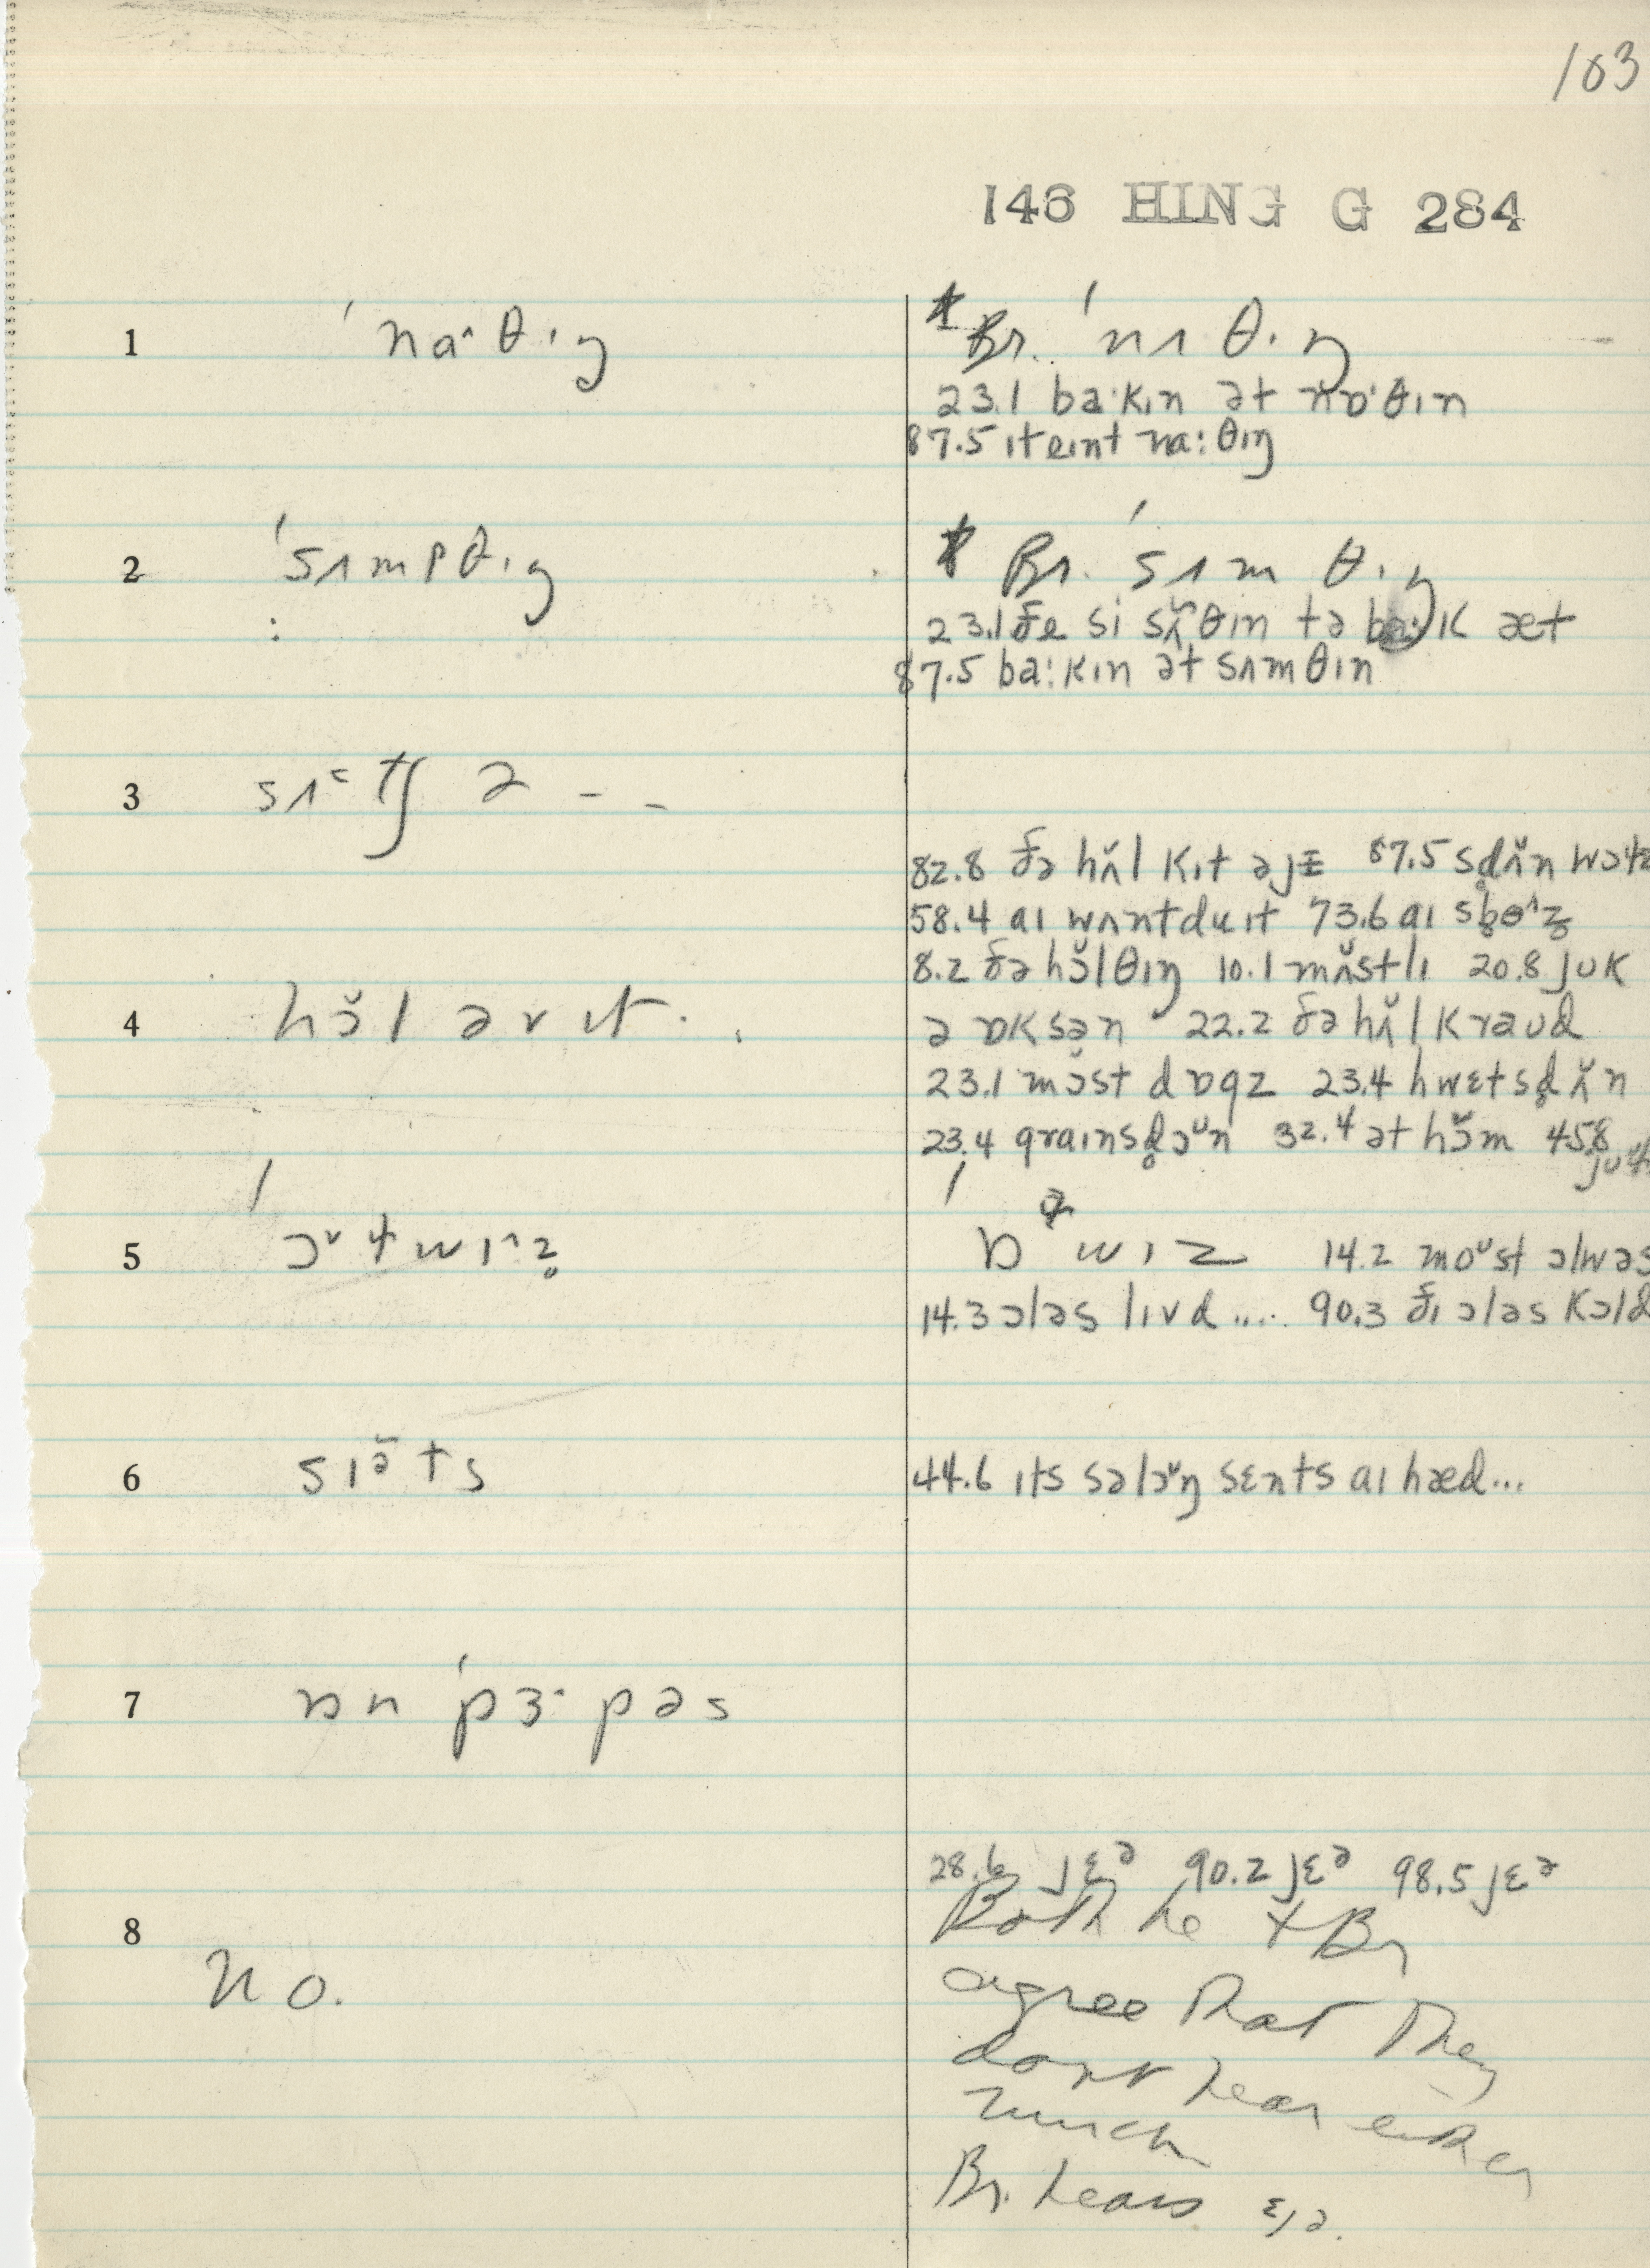 103
146 HING G 284
1 ˈnaˑθɪŋ
Br. ˈnʌθɪŋ
23.1 baˑkɪn ət nɒˑθɪn
87.5 ɪteɪnt naːθɪŋ
2 ˈsʌmpθɪŋ
Br. ˈsʌmθɪŋ
23.1 ðe si sʌ̃θɪn tə baːk æt
87.5 baːkɪn ət sʌmθɪn
3 sʌtʃ ə - -
82.8 ðə hʌ̆l kɪt əjɪ 87.5 sd̥ʌ̆n
58.4 aɪ wʌntduɪt 73.6 aɪ
8.2 ðə hɔ̆lθɪŋ 10.1 mʌ̆stlɪ 20.8 juk
4 hɔ̆l əv ɪt . .
ə ɒksən 22.2 ðə hʌ̆l kraud
23.1 mɔ̆st dɒgz 23.4 hwɛtsd̥ʌ̆n
23.4 graɪnsd̥ɔᵘn 32.4 ət hɔ̆m 45.8
5 ˈɔᶷɫwɪˆz̥
ˈɒɫwɪz 14.2 moᶷst ɔlwəs
14.3 ɔləs lɪvd .... 90.3 ðɪ ɔləs kɔld
6 sɪə̆ts
44.6 ɪts səlɔᶷŋ sɛnts aɪ hæd...
7 ɒn ˈpɜˑpəs
28.6 jɛᵊ 90.2 jɛᵊ 98.5 jɛᵊ
8 no.
Both he + Br
agree that they
don't hear either
much
Br. hears ɛ/ə.